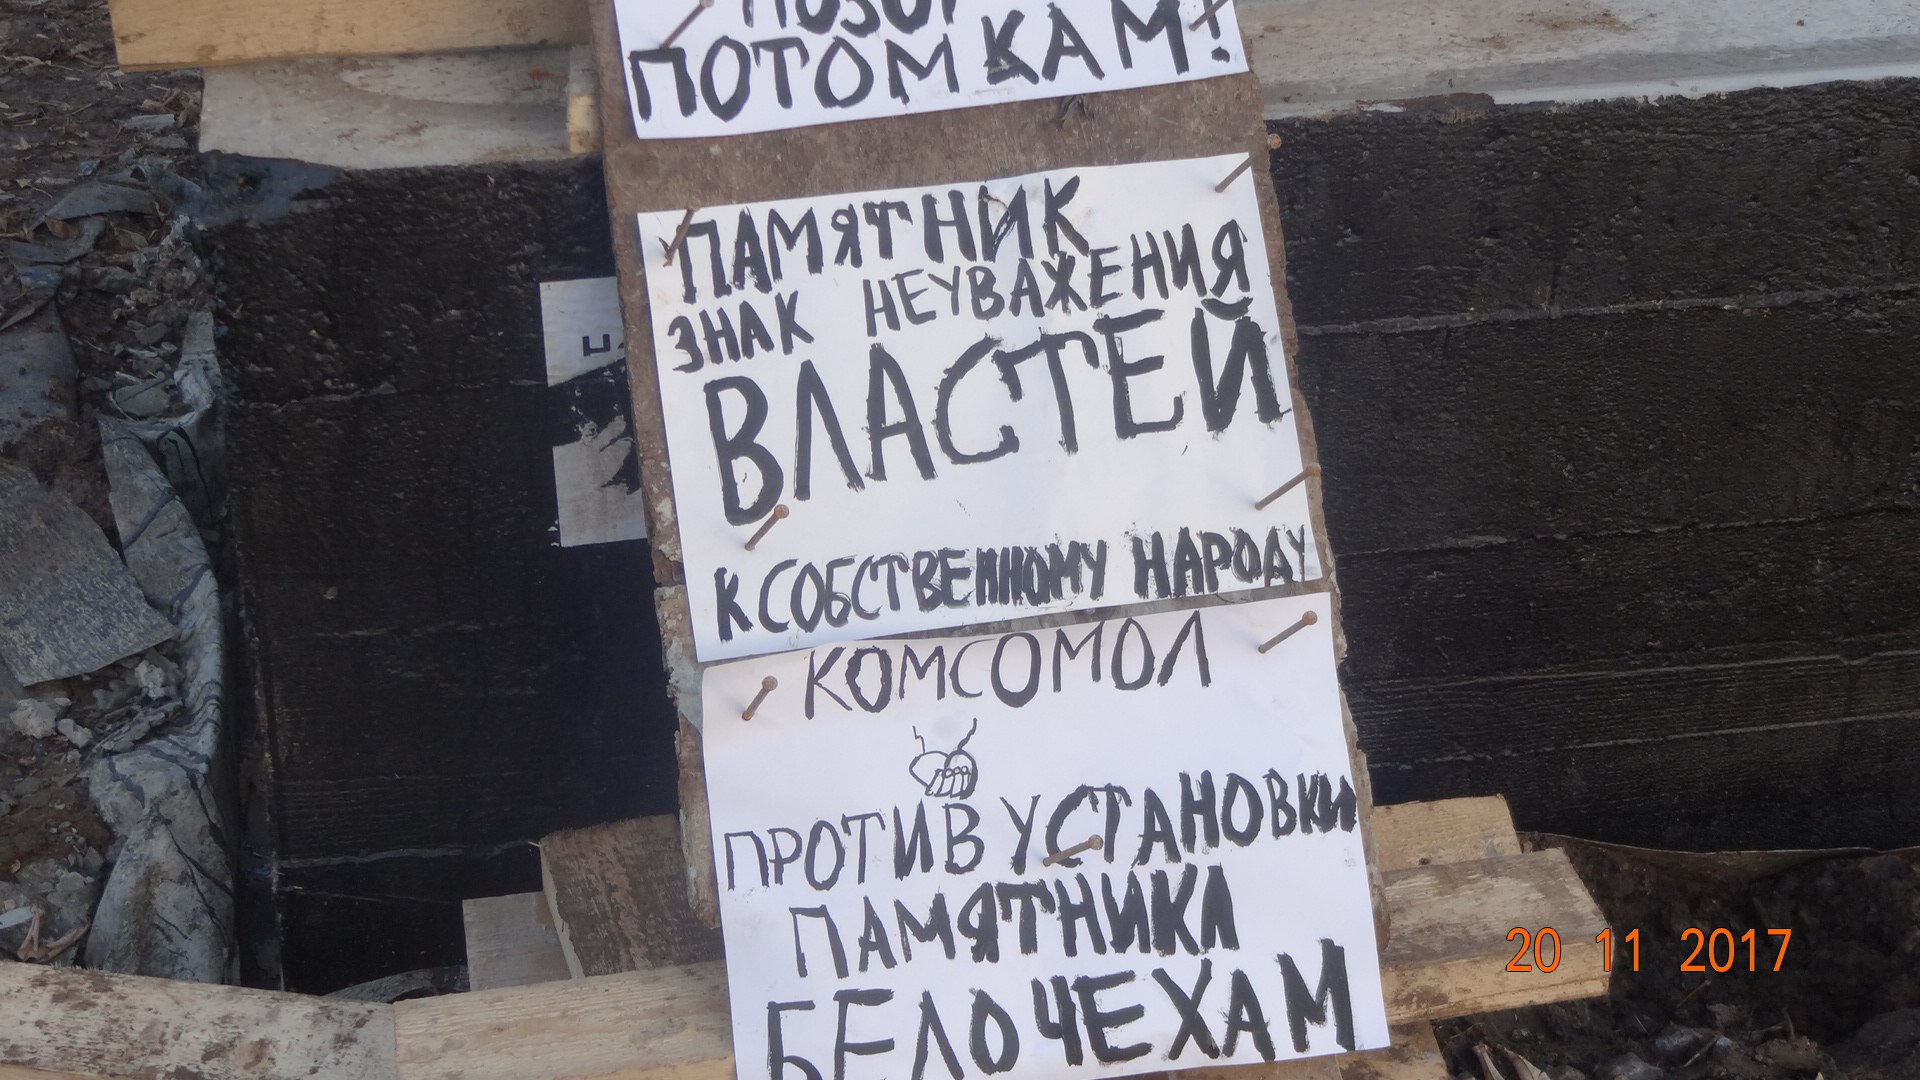 ПОЗОР
ПОТОМКАМ!
ПАМЯТНИК
ЗНАК НЕУВАЖЕНИЯ
ВЛАСТЕЙ
К СОБСТВЕННОМУ НАРОДУ
КОМСОМОЛ
ПРОТИВ УСТАНОВКИ
ПАМЯТНИКА
БЕЛОЧЕХАМ
20 11 2017